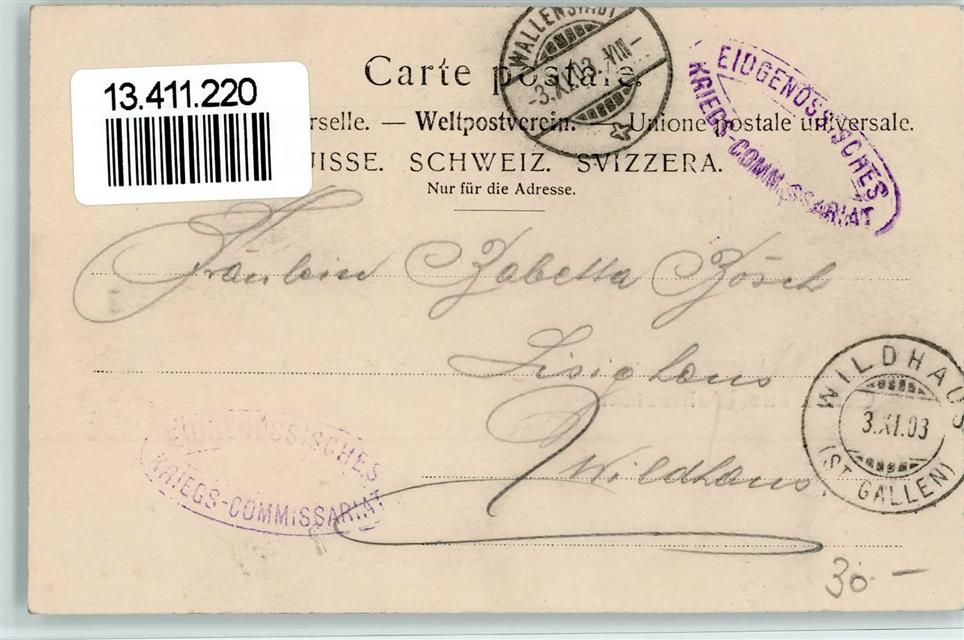 WALLENSTADT
-3.XI.03.-VIII-
Carte postale.
EIDGENÖSSISCHES
KRIEGS-COMMISSARIAT
13.411.220
rselle. — Weltpostverein. — Unione postale universale.
UISSE. SCHWEIZ. SVIZZERA.
Nur für die Adresse.
Fräulein Babetta Bösch
Lisighaus
Wildhaus
WILDHAUS
3.XI.03
(ST. GALLEN)
EIDGENÖSSISCHES
KRIEGS-COMMISSARIAT
30.-